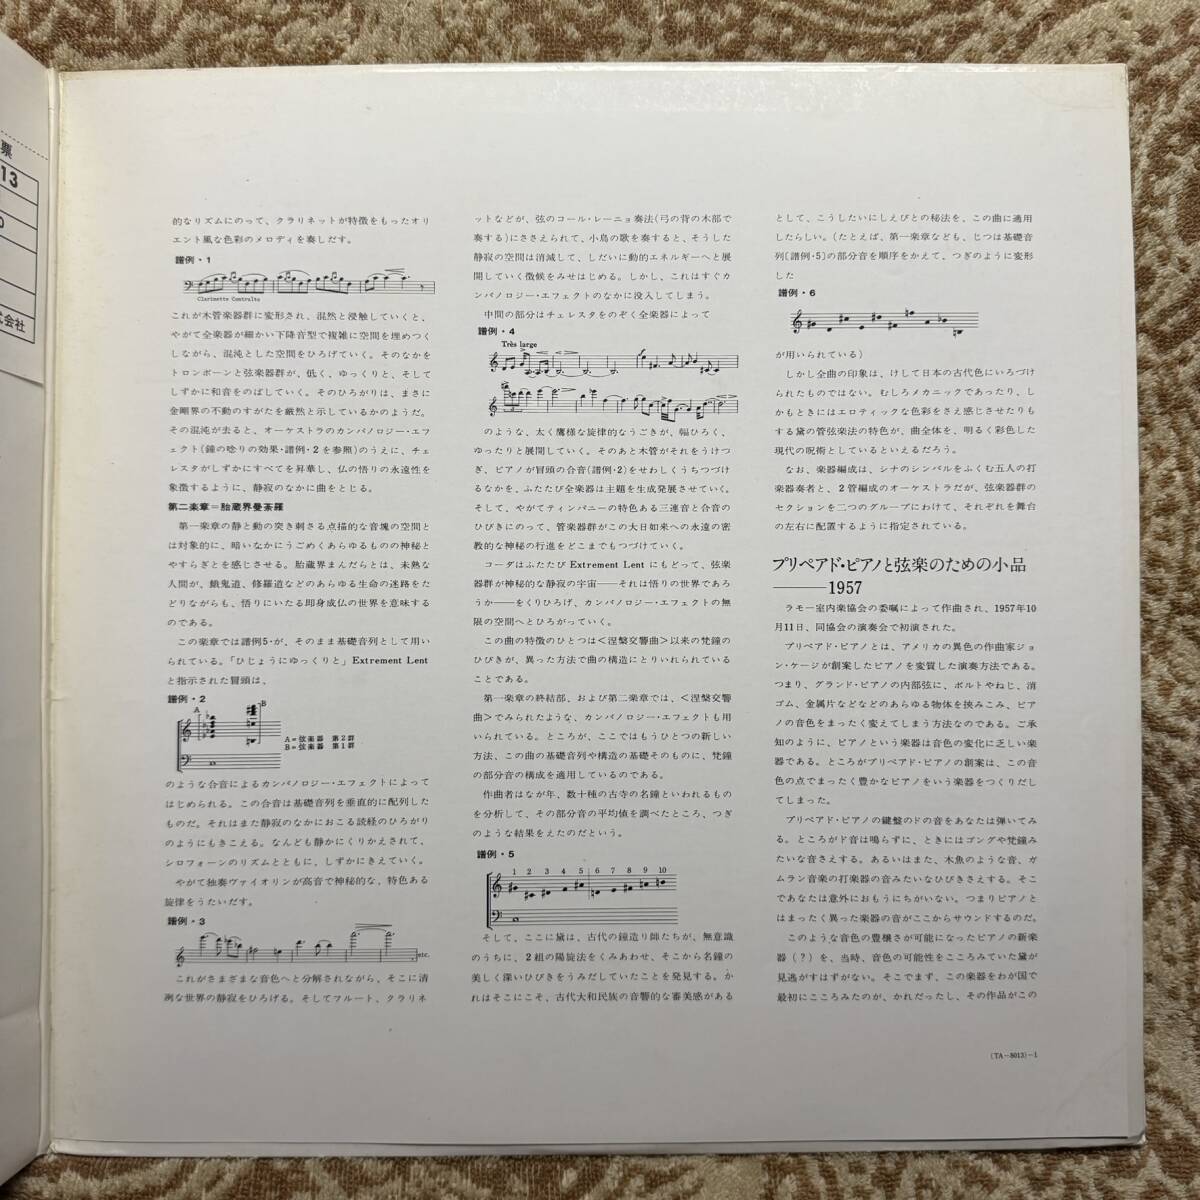 票
13
式会社
的なリズムにのって、クラリネットが特徴をもったオリ
エント風な色彩のメロディを奏しだす。
譜例・1
Clarinette Contralto
これが木管楽器群に変形され、混然と浸触していくと、
やがて全楽器が細かい下降音型で複雑に空間を埋めつく
しながら、混沌とした空間をひろげていく。そのなかを
トロンボーンと弦楽器群が、低く、ゆっくりと、そして
しずかに和音をのばしていく。そのひろがりは、まさに
金剛界の不動のすがたを厳然と示しているかのようだ。
その混沌が去ると、オーケストラのカンパノロジー・エフ
ェクト(鐘の唸りの効果・譜例・2を参照)のうえに、チェ
レスタがしずかにすべてを昇華し、仏の悟りの永遠性を
象徴するように、静寂のなかに曲をとじる。
第二楽章=胎蔵界曼荼羅
第一楽章の静と動の突き刺さる点描的な音塊の空間と
は対象的に、暗いなかにうごめくあらゆるものの神秘と
やすらぎとを感じさせる。胎蔵界まんだらとは、未熟な
人間が、餓鬼道、修羅道などのあらゆる生命の迷路をた
どりながらも、悟りにいたる即身成仏の世界を意味する
のである。
この楽章では譜例5・が、そのまま基礎音列として用い
られている。「ひじょうにゆっくりと」Extrement Lent
と指示された冒頭は、
譜例・2
A B
A=弦楽器 第2群
B=弦楽器 第1群
のような合音によるカンパノロジー・エフェクトによって
はじめられる。この合音は基礎音列を垂直的に配列した
ものだ。それはまた静寂のなかにおこる読経のひろがり
のようにもきこえる。なんども静かにくりかえされて、
シロフォーンのリズムとともに、しずかにきえていく。
やがて独奏ヴァイオリンが高音で神秘的な、特色ある
旋律をうたいだす。
譜例・3
etc.
これがさまざまな音色へと分解されながら、そこに清
冽な世界の静寂をひろげる。そしてフルート、クラリネ
ットなどが、弦のコール・レーニョ奏法(弓の背の木部で
奏する)にささえられて、小鳥の歌を奏すると、そうした
静寂の空間は消滅して、しだいに動的エネルギーへと展
開していく徴候をみせはじめる。しかし、これはすぐカ
ンパノロジー・エフェクトのなかに没入してしまう。
中間の部分はチェレスタをのぞく全楽器によって
譜例・4
Très large
のような、太く鷹揚な旋律的なうごきが、幅ひろく、
ゆったりと展開していく。そのあと木管がそれをうけつ
ぎ、ピアノが冒頭の合音(譜例・2)をせわしくうちつづけ
るなかを、ふたたび全楽器は主題を生成発展させていく。
そして、やがてティンパニーの特色ある三連音と合音の
ひびきにのって、管楽器群がこの大日如来への永遠の密
教的な神秘の行進をどこまでもつづけていく。
コーダはふたたびExtrement Lentにもどって、弦楽
器群が神秘的な静寂の宇宙──それは悟りの世界であろ
うか──をくりひろげ、カンパノロジー・エフェクトの無
限の空間へとひろがっていく。
この曲の特徴のひとつは<涅槃交響曲>以来の梵鐘の
ひびきが、異った方法で曲の構造にとりいれられている
ことである。
第一楽章の終結部、および第二楽章では、<涅槃交響
曲>でみられたような、カンパノロジー・エフェクトも用
いられている。ところが、ここではもうひとつの新しい
方法、この曲の基礎音列や構造の基礎そのものに、梵鐘
の部分音の構成を適用しているのである。
作曲者はなが年、数十種の古寺の名鐘といわれるもの
を分析して、その部分音の平均値を調べたところ、つぎ
のような結果をえたのだという。
譜例・5
1 2 3 4 5 6 7 8 9 10
そして、ここに黛は、古代の鐘造り師たちが、無意識
のうちに、2組の陽旋法をくみあわせ、そこから名鐘の
美しく深いひびきをうみだしていたことを発見する。か
れはそこにこそ、古代大和民族の音響的な審美感がある
として、こうしたいにしえびとの秘法を、この曲に適用
したらしい。(たとえば、第一楽章なども、じつは基礎音
列〔譜例・5〕の部分音を順序をかえて、つぎのように変形
した
譜例・6
が用いられている)
しかし全曲の印象は、けして日本の古代色にいろづけ
られたものではない。むしろメカニックであったり、し
かもときにはエロティックな色彩をさえ感じさせたりも
する黛の管弦楽法の特色が、曲全体を、明るく彩色した
現代の呪術としているといえるだろう。
なお、楽器編成は、シナのシンバルをふくむ五人の打
楽器奏者と、2管編成のオーケストラだが、弦楽器群の
セクションを二つのグループにわけて、それぞれを舞台
の左右に配置するように指定されている。
プリペアド・ピアノと弦楽のための小品
──1957
ラモー室内楽協会の委嘱によって作曲され、1957年10
月11日、同協会の演奏会で初演された。
プリペアド・ピアノとは、アメリカの異色の作曲家ジョ
ン・ケージが創案したピアノを変質した演奏方法である。
つまり、グランド・ピアノの内部弦に、ボルトやねじ、消
ゴム、金属片などなどのあらゆる物体を挟みこみ、ピア
ノの音色をまったく変えてしまう方法なのである。ご承
知のように、ピアノという楽器は音色の変化に乏しい楽
器である。ところがプリペアド・ピアノの創案は、この音
色の点でまったく豊かなピアノをいう楽器をつくりだし
てしまった。
プリペアド・ピアノの鍵盤のドの音をあなたは弾いてみ
る。ところがド音は鳴らずに、ときにはゴングや梵鐘み
たいな音さえする。あるいはまた、木魚のような音、ガ
ムラン音楽の打楽器の音みたいなひびきさえする。そこ
であなたは意外におもうにちがいない。つまりピアノと
はまったく異った楽器の音がここからサウンドするのだ。
このような音色の豊穣さが可能になったピアノの新楽
器(?)を、当時、音色の可能性をこころみていた黛が
見逃がすはずがない。そこでまず、この楽器をわが国で
最初にこころみたのが、かれだったし、その作品がこの
(TA-8013)-1